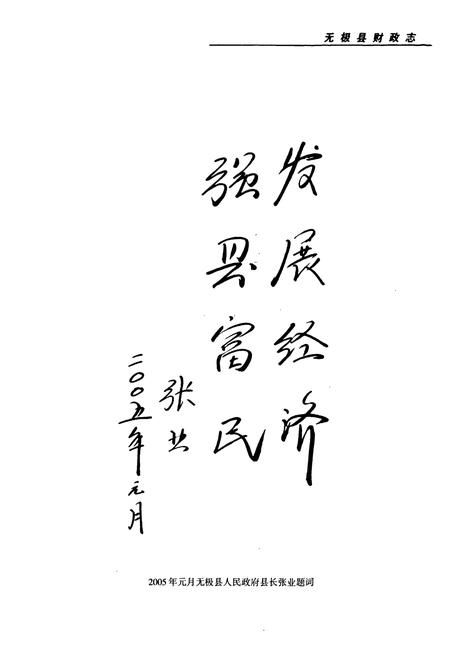 无极县财政志
发展经济
强县富民
张业
二〇〇五年元月
2005年元月无极县人民政府县长张业题词